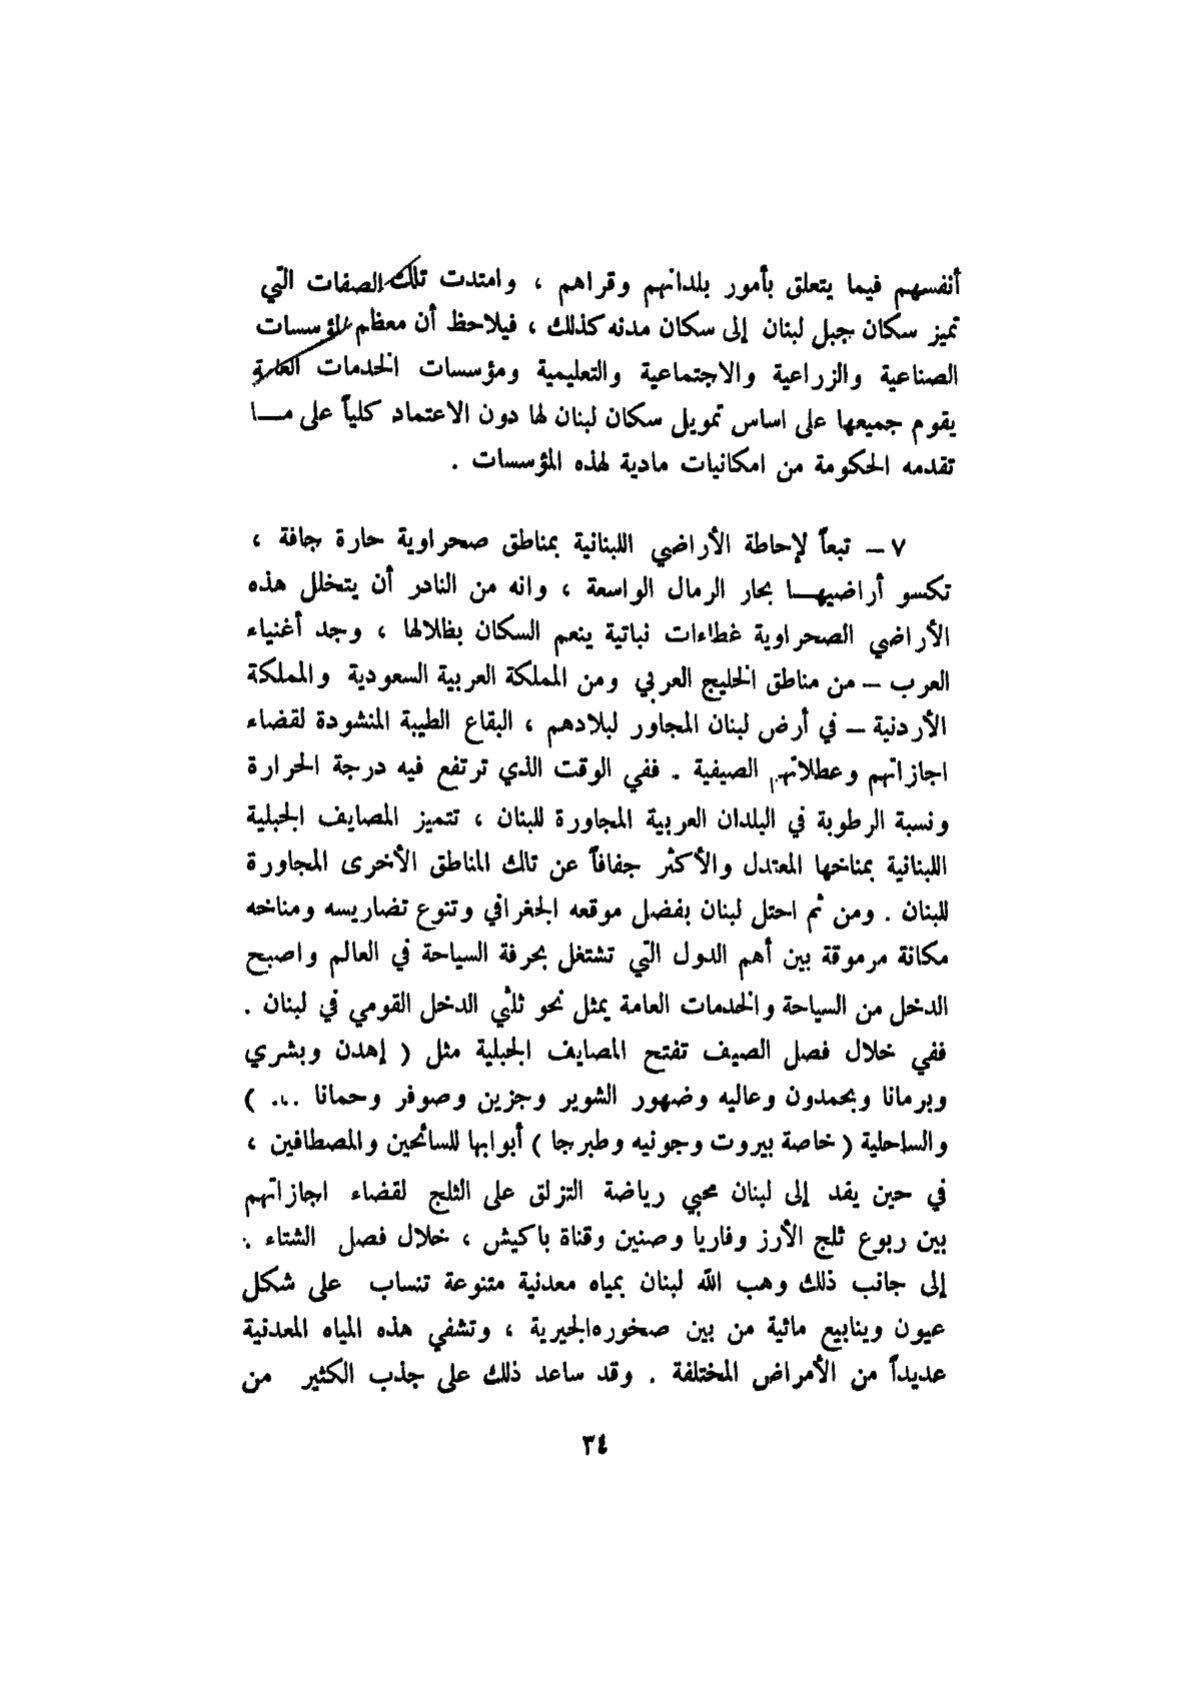 أنفسهم فيما يتعلق بأمور بلدانهم وقراهم ، وامتدت تلك الصفات التي
تميز سكان جبل لبنان إلى سكان مدنه كذلك ، فيلاحظ أن معظم المؤسسات
الصناعية والزراعية والاجتماعية والتعليمية ومؤسسات الخدمات العامة
يقوم جميعها على اساس تمويل سكان لبنان لها دون الاعتماد كلياً على مـــا
تقدمه الحكومة من امكانيات مادية لهذه المؤسسات .
٧ – تبعاً لإحاطة الأراضي اللبنانية بمناطق صحراوية حارة جافة ،
تكسو أراضيهـــا بحار الرمال الواسعة ، وانه من النادر أن يتخلل هذه
الأراضي الصحراوية غطاءات نباتية ينعم السكان بظلالها ، وجد أغنياء
العرب – من مناطق الخليج العربي ومن المملكة العربية السعودية والمملكة
الأردنية – في أرض لبنان المجاور لبلادهم ، البقاع الطيبة المنشودة لقضاء
اجازاتهم وعطلاتهم الصيفية . ففي الوقت الذي ترتفع فيه درجة الحرارة
ونسبة الرطوبة في البلدان العربية المجاورة للبنان ، تتميز المصايف الجبلية
اللبنانية بمناخها المعتدل والأكثر جفافاً عن تلك المناطق الأخرى المجاورة
للبنان . ومن ثم احتل لبنان بفضل موقعه الجغرافي وتنوع تضاريسه ومناخه
مكانة مرموقة بين أهم الدول التي تشتغل بحرفة السياحة في العالم واصبح
الدخل من السياحة والخدمات العامة يمثل نحو ثلثي الدخل القومي في لبنان .
ففي خلال فصل الصيف تفتح المصايف الجبلية مثل ( إهدن وبشري
وبرمانا وبحمدون وعاليه وضهور الشوير وجزين وصوفر وحمانا ... )
والساحلية ( خاصة بيروت وجونيه وطبرجا ) أبوابها للسائحين والمصطافين ،
في حين يفد إلى لبنان محبي رياضة التزلق على الثلج لقضاء اجازاتهم
بين ربوع ثلج الأرز وفاريا وصنين وقناة باكيش ، خلال فصل الشتاء .
إلى جانب ذلك وهب الله لبنان بمياه معدنية متنوعة تنساب على شكل
عيون وينابيع مائية من بين صخوره الجيرية ، وتشفي هذه المياه المعدنية
عديداً من الأمراض المختلفة . وقد ساعد ذلك على جذب الكثير من
٣٤